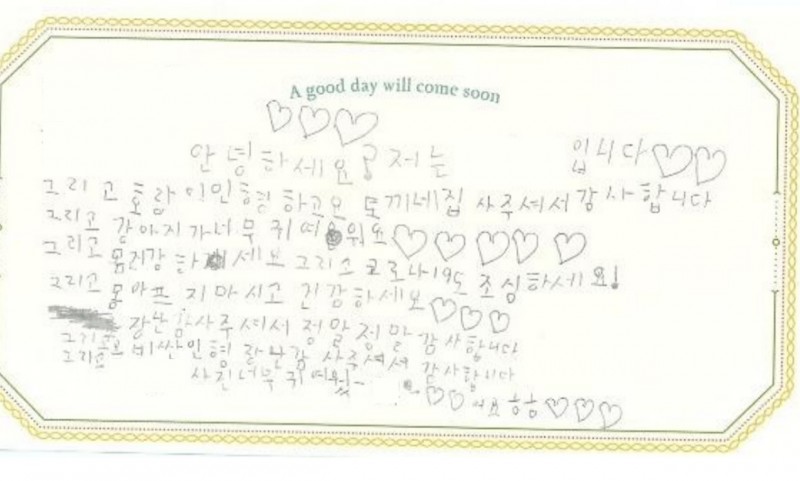 A good day will come soon
♡♡♡
안녕하세요? 저는 입니다♡♡
그리고 호랑이인형하고요 토끼네집 사주셔서 감사합니다
그리고 강아지가너무 귀여워요♡♡♡♡♡
그리고 몸건강하세요 그리고 코로나19도 조심하세요!
그리고 몸아프지마시고 건강하세요♡♡♡
장난감사주셔서 정말정말 감사합니다
그리고 비싼인형 장난감 사주셔서 감사합니다
그리고 사진너무 귀여워
♡♡ ♡♡♡